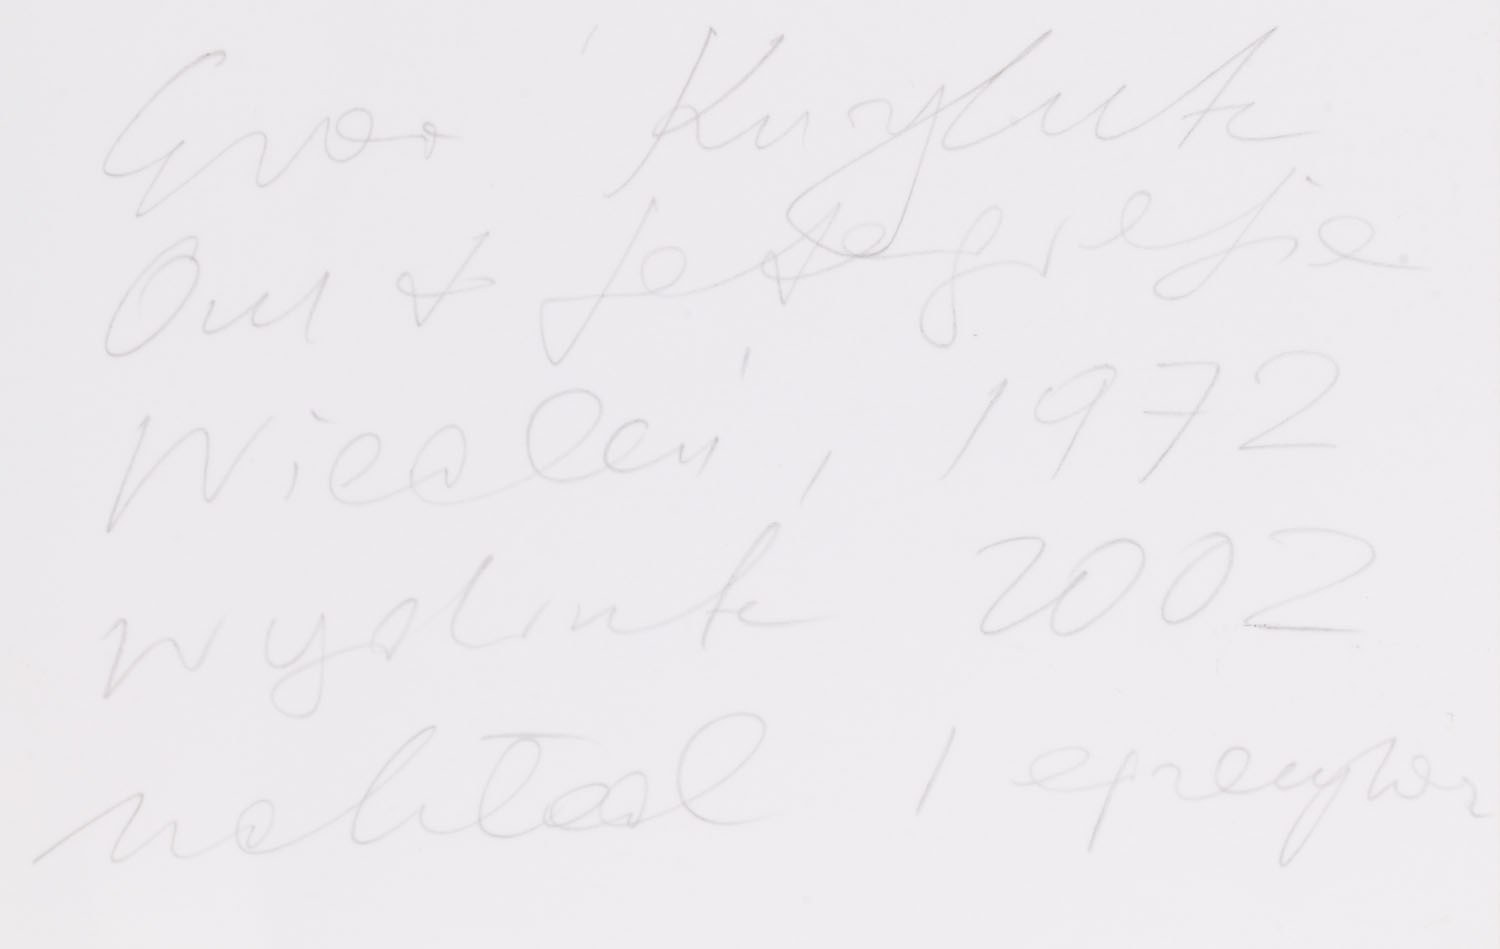 Ewa Kuryluk
Autofotografie
Wiedeń, 1972
wydruk 2002
nakład 1 egzemplarz